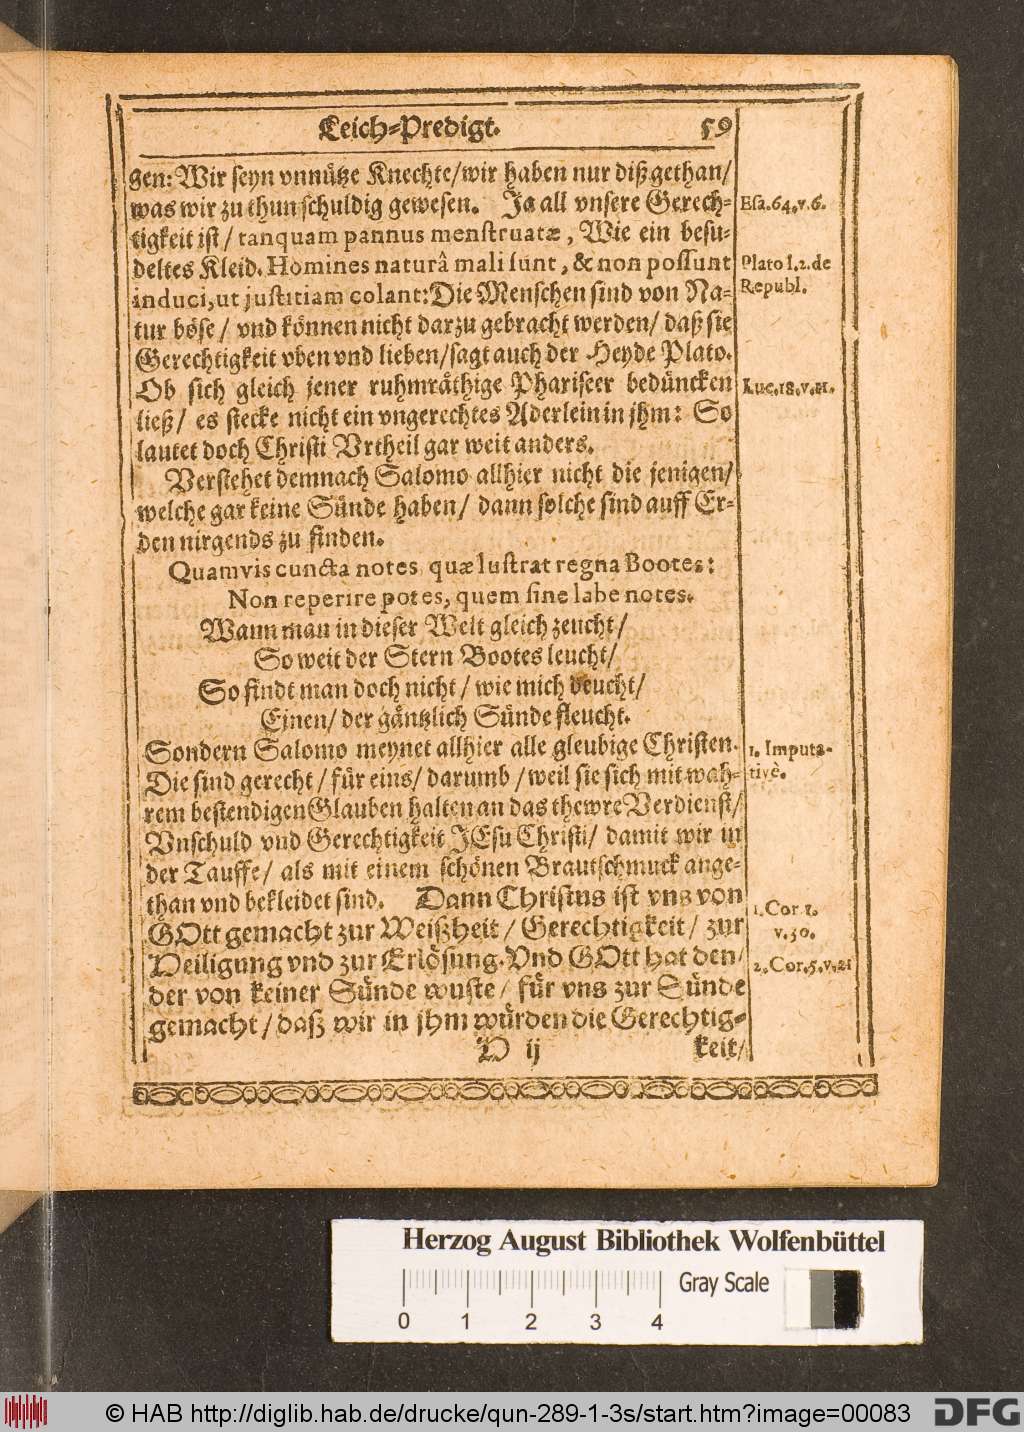 Leich-Predigt. 59
gen: Wir seyn vnnütze Knechte/ wir haben nur diß gethan/
was wir zu thun schuldig gewesen. Ja all vnsere Gerech-
Esa. 64. v. 6.
tigkeit ist/ tanquam pannus menstruatæ, Wie ein besu-
deltes Kleid. Homines naturâ mali sunt, & non possunt
Plato l. 2. de
induci, ut justitiam colant: Die Menschen sind von Na-
Republ.
tur böse/ vnd können nicht darzu gebracht werden/ daß sie
Gerechtigkeit vben vnd lieben/ sagt auch der Heyde Plato.
Ob sich gleich jener ruhmräthige Phariseer bedüncken
Luc. 18. v. 11.
ließ/ es stecke nicht ein vngerechtes Aderlein in jhm: So
lautet doch Christi Vrtheil gar weit anders.
Verstehet demnach Salomo allhier nicht die jenigen/
welche gar keine Sünde haben/ dann solche sind auff Er-
den nirgends zu finden.
Quamvis cuncta notes, quæ lustrat regna Bootes:
Non reperire potes, quem sine labe notes.
Wann man in dieser Welt gleich zeucht/
So weit der Stern Bootes leucht/
So findt man doch nicht/ wie mich deucht/
Einen/ der gäntzlich Sünde fleucht.
Sondern Salomo meynet allhier alle gleubige Christen.
1. Imputa-
Die sind gerecht/ für eins/ darumb/ weil sie sich mit wah-
tivè.
rem bestendigen Glauben halten an das thewre Verdienst/
Vnschuld vnd Gerechtigkeit JEsu Christi/ damit wir in
der Tauffe/ als mit einem schönen Brautschmuck ange-
than vnd bekleidet sind. Dann Christus ist vns von
1. Cor. 1.
GOtt gemacht zur Weißheit/ Gerechtigkeit/ zur
v. 30.
Heiligung vnd zur Erlösung. Vnd GOtt hat den/
2. Cor. 5. v. 21
der von keiner Sünde wuste/ für vns zur Sünde
gemacht/ daß wir in jhm würden die Gerechtig-
H ij keit/
Herzog August Bibliothek Wolfenbüttel
Gray Scale
0 1 2 3 4
© HAB http://diglib.hab.de/drucke/qun-289-1-3s/start.htm?image=00083
DFG